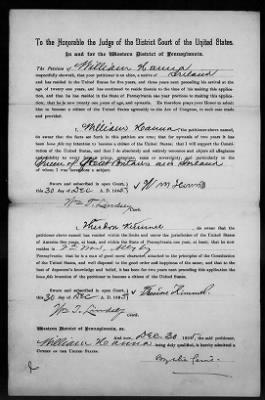 To the Honorable the Judge of the District Court of the United States.
In and for the Western District of Pennsylvania.
The Petition of William Hanna
respectfully sheweth, that your petitioner is an alien, a native of Ireland
and has resided in the United States for five years, and three years next preceding his arrival at the
age of twenty one years, and has continued to reside therein to the time of making this application,
and that he has resided in the State of Pennsylvania one year prior to making this applica-
tion; that he is now twenty one years of age, and upwards. He therefore prays your Honor to admit
him to become a Citizen of the United States agreeably to the Act of Congress, in such case made
and provided.
I, William Hanna the petitioner above named,
do swear that the facts set forth in this petition are true; that for upwards of two years it has
been bona fide my intention to become a citizen of the United States; that I will support the Constitution
of the United States, and that I do absolutely and entirely renounce and abjure all allegiance
and fidelity to every foreign prince, potentate, state or sovereignty, and particularly to the
Queen of Great Britain and Ireland
of whom I was heretofore a subject.
Sworn and subscribed in open Court,
this 30 day of Dec A. D. 188
Wm T. Lindsey
Clerk.
do swear the petitioner
above named has resided within the limits and under the jurisdiction of the United States
of America five years, at least, and within the State of Pennsylvania, one year, at least; that he now
resided in 2d Ward,
Pennsylvania; that he is a man of good moral character, attached to the principles of the Constitution
of the United States, and well disposed to the good order and happiness of the same, and that to the
best of deponent's knowledge and belief, it has been for two years next preceding this application his
bona fide intention of the petitioner to become a citizen of the United States.
Sworn and subscribed in open Court,
this 30 day of Dec A. D. 188
Wm T. Lindsey
Clerk.
Western District of Pennsylvania, ss.
And now, Dec 30 188
William Hanna being duly qualified, is hereby admitted a
Citizen of the United States.